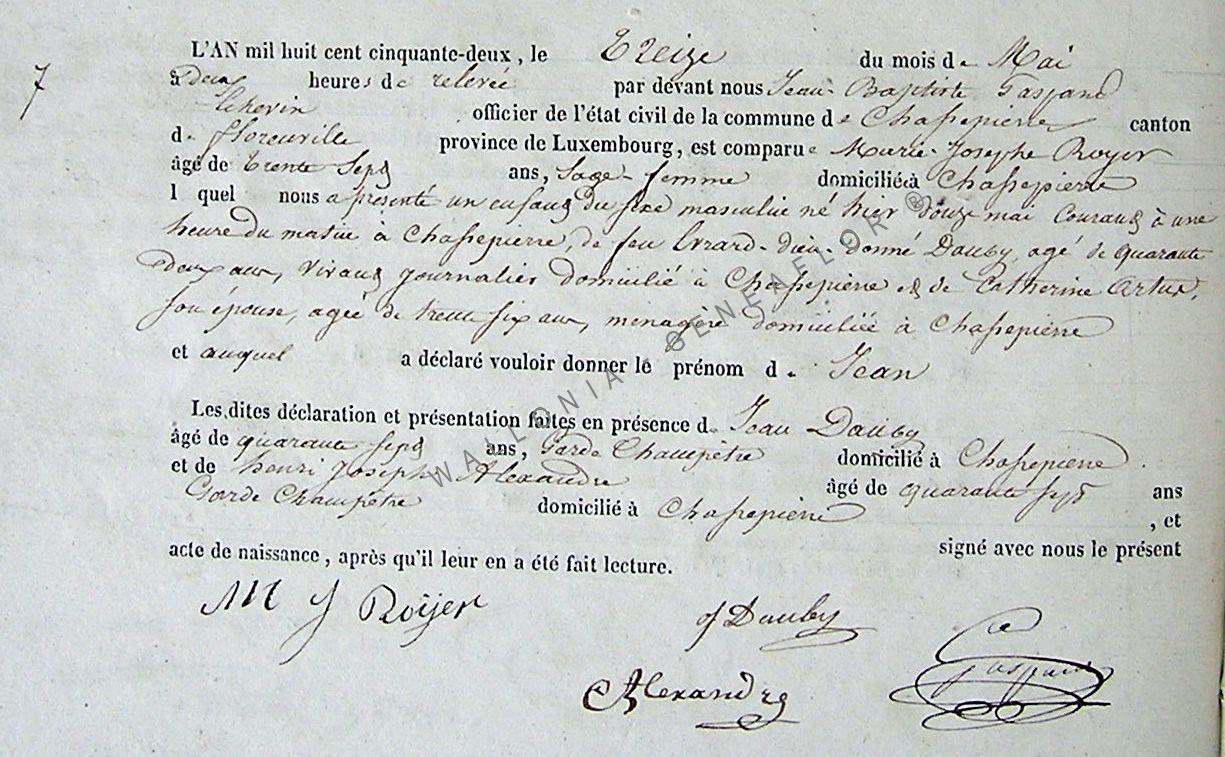 7
L'AN mil huit cent cinquante-deux, le Treize du mois de Mai
à deux heures de relevée par devant nous Jean-Baptiste Gaspard
Echevin officier de l'état civil de la commune de Chassepierre canton
de florenville province de Luxembourg, est comparue Marie-Josephe Royer
âgé de trente sept ans, Sage-femme domicilié à Chassepierre
l quel nous a présenté un enfant du sexe masculin né hier douze mai courant à une
heure du matin à Chassepierre, de feu Evrard-dieu-donné Dauby, agé de quarante
deux ans, vivant journalier domicilié à Chassepierre et de Catherine Artus,
son épouse, agée de trente six ans, ménagère domiciliée à Chassepierre
et auquel a déclaré vouloir donner le prénom de Jean
Les dites déclaration et présentation faites en présence de Jean Dauby
âgé de quarante sept ans, Garde Champêtre domicilié à Chassepierre
et de henri Joseph Alexandre âgé de quarante sept ans
Garde Champêtre domicilié à Chassepierre , et
signé avec nous le présent
acte de naissance, après qu'il leur en a été fait lecture.
M J Roÿer
J Dauby
Alexandre
Gaspard
WALLONIA - GENEAFLOR ®